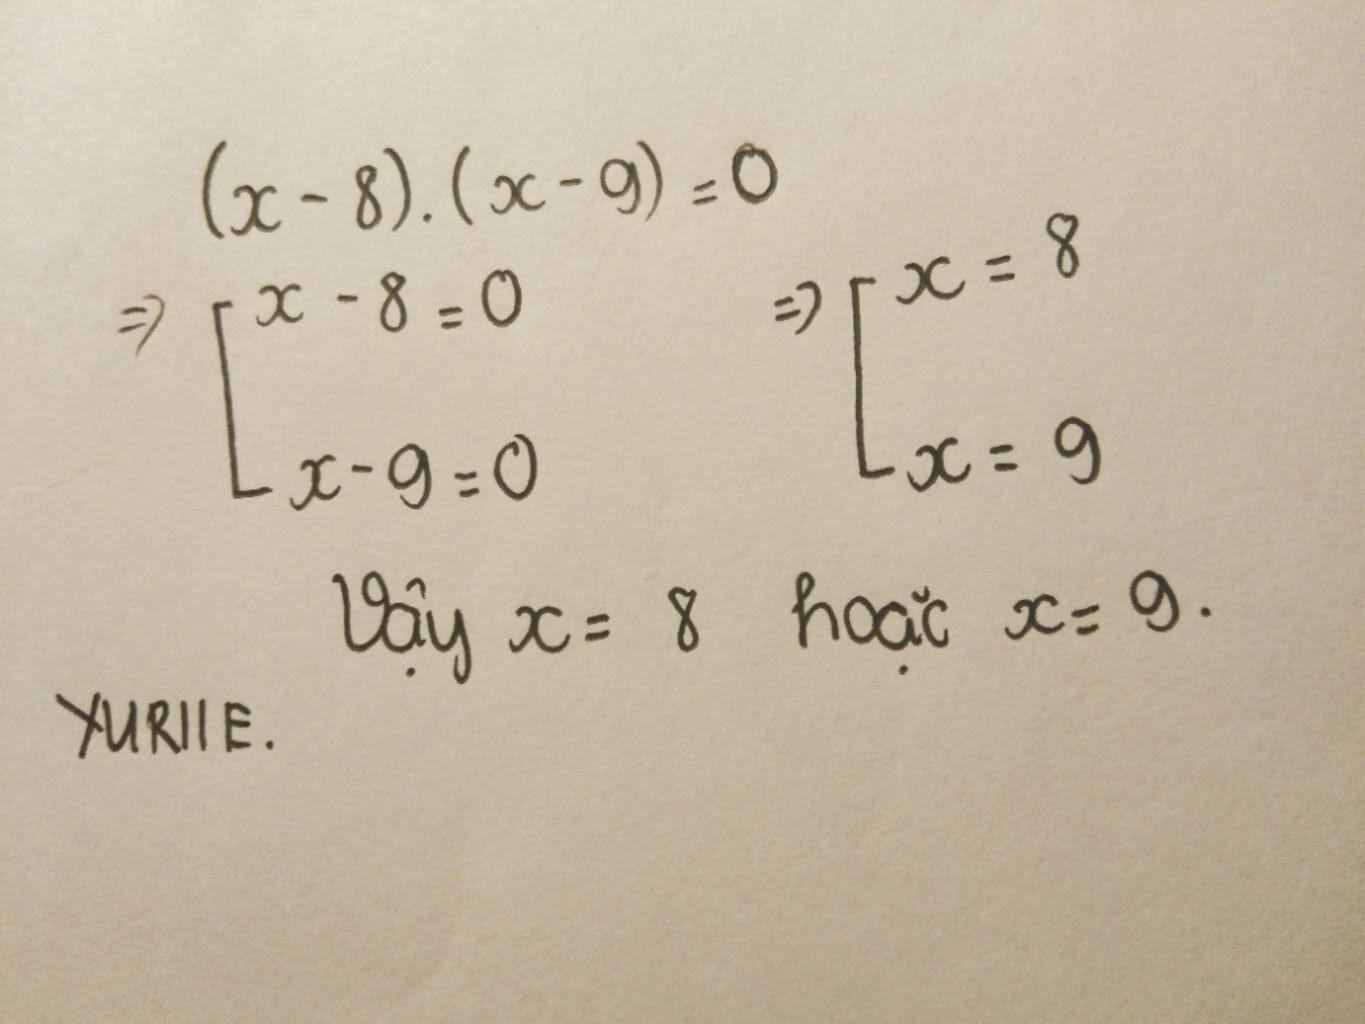 (x - 8).(x - 9) = 0
⇒ [ x - 8 = 0 ⇒ [ x = 8
x - 9 = 0 x = 9
Vậy x = 8 hoặc x = 9.
YURIIE.